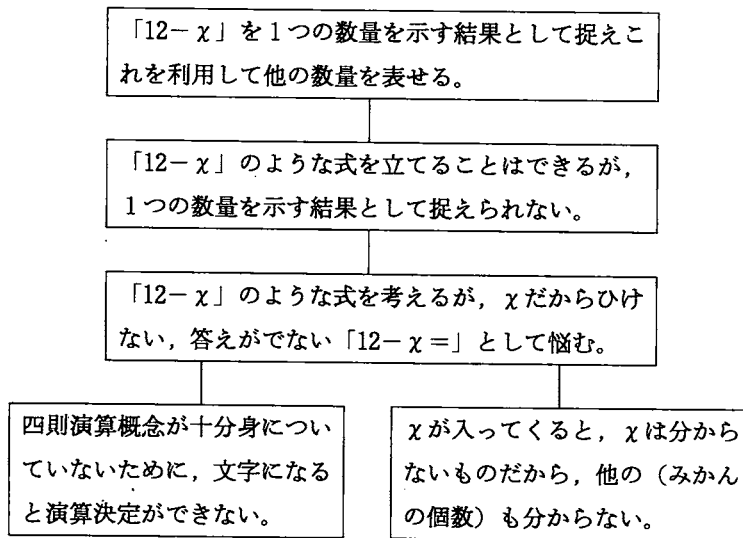 「12－χ」を1つの数量を示す結果として捉えこ
れを利用して他の数量を表せる。
「12－χ」のような式を立てることはできるが，
1つの数量を示す結果として捉えられない。
「12－χ」のような式を考えるが，χだからひけ
ない，答えがでない「12－χ＝」として悩む。
四則演算概念が十分身につい
ていないために，文字になる
と演算決定ができない。
χが入ってくると，χは分から
ないものだから，他の（みかん
の個数）も分からない。